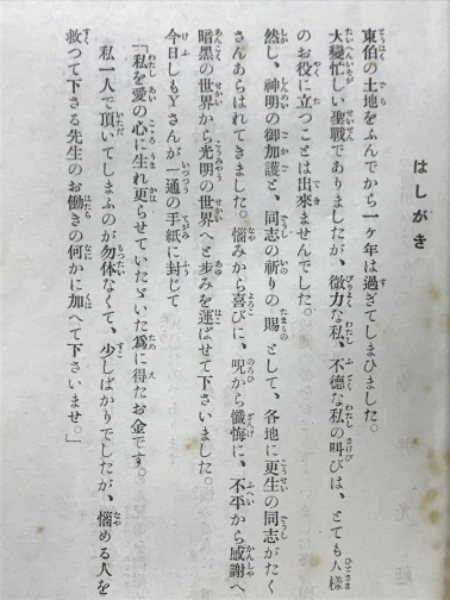 はしがき
東伯の土地をふんでから一ヶ年は過ぎてしまひました。
大變忙しい聖戰でありましたが、微力な私、不德な私の叫びは、とても人樣
のお役に立つことは出來ませんでした。
然し、神明の御加護と、同志の祈りの賜として、各地に更生の同志がたく
さんあらはれてきました。惱みから喜びに、呪から懺悔に、不平から感謝へ
暗黑の世界から光明の世界へと步みを運ばせて下さいました。
今日しもYさんが一通の手紙に封じて
「私を愛の心に生れ更らせていたゞいた爲に得たお金です。
私一人で頂いてしまふのが勿体なくて、少しばかりでしたが、惱める人を
救つて下さる先生のお働きの何かに加へて下さいませ。」